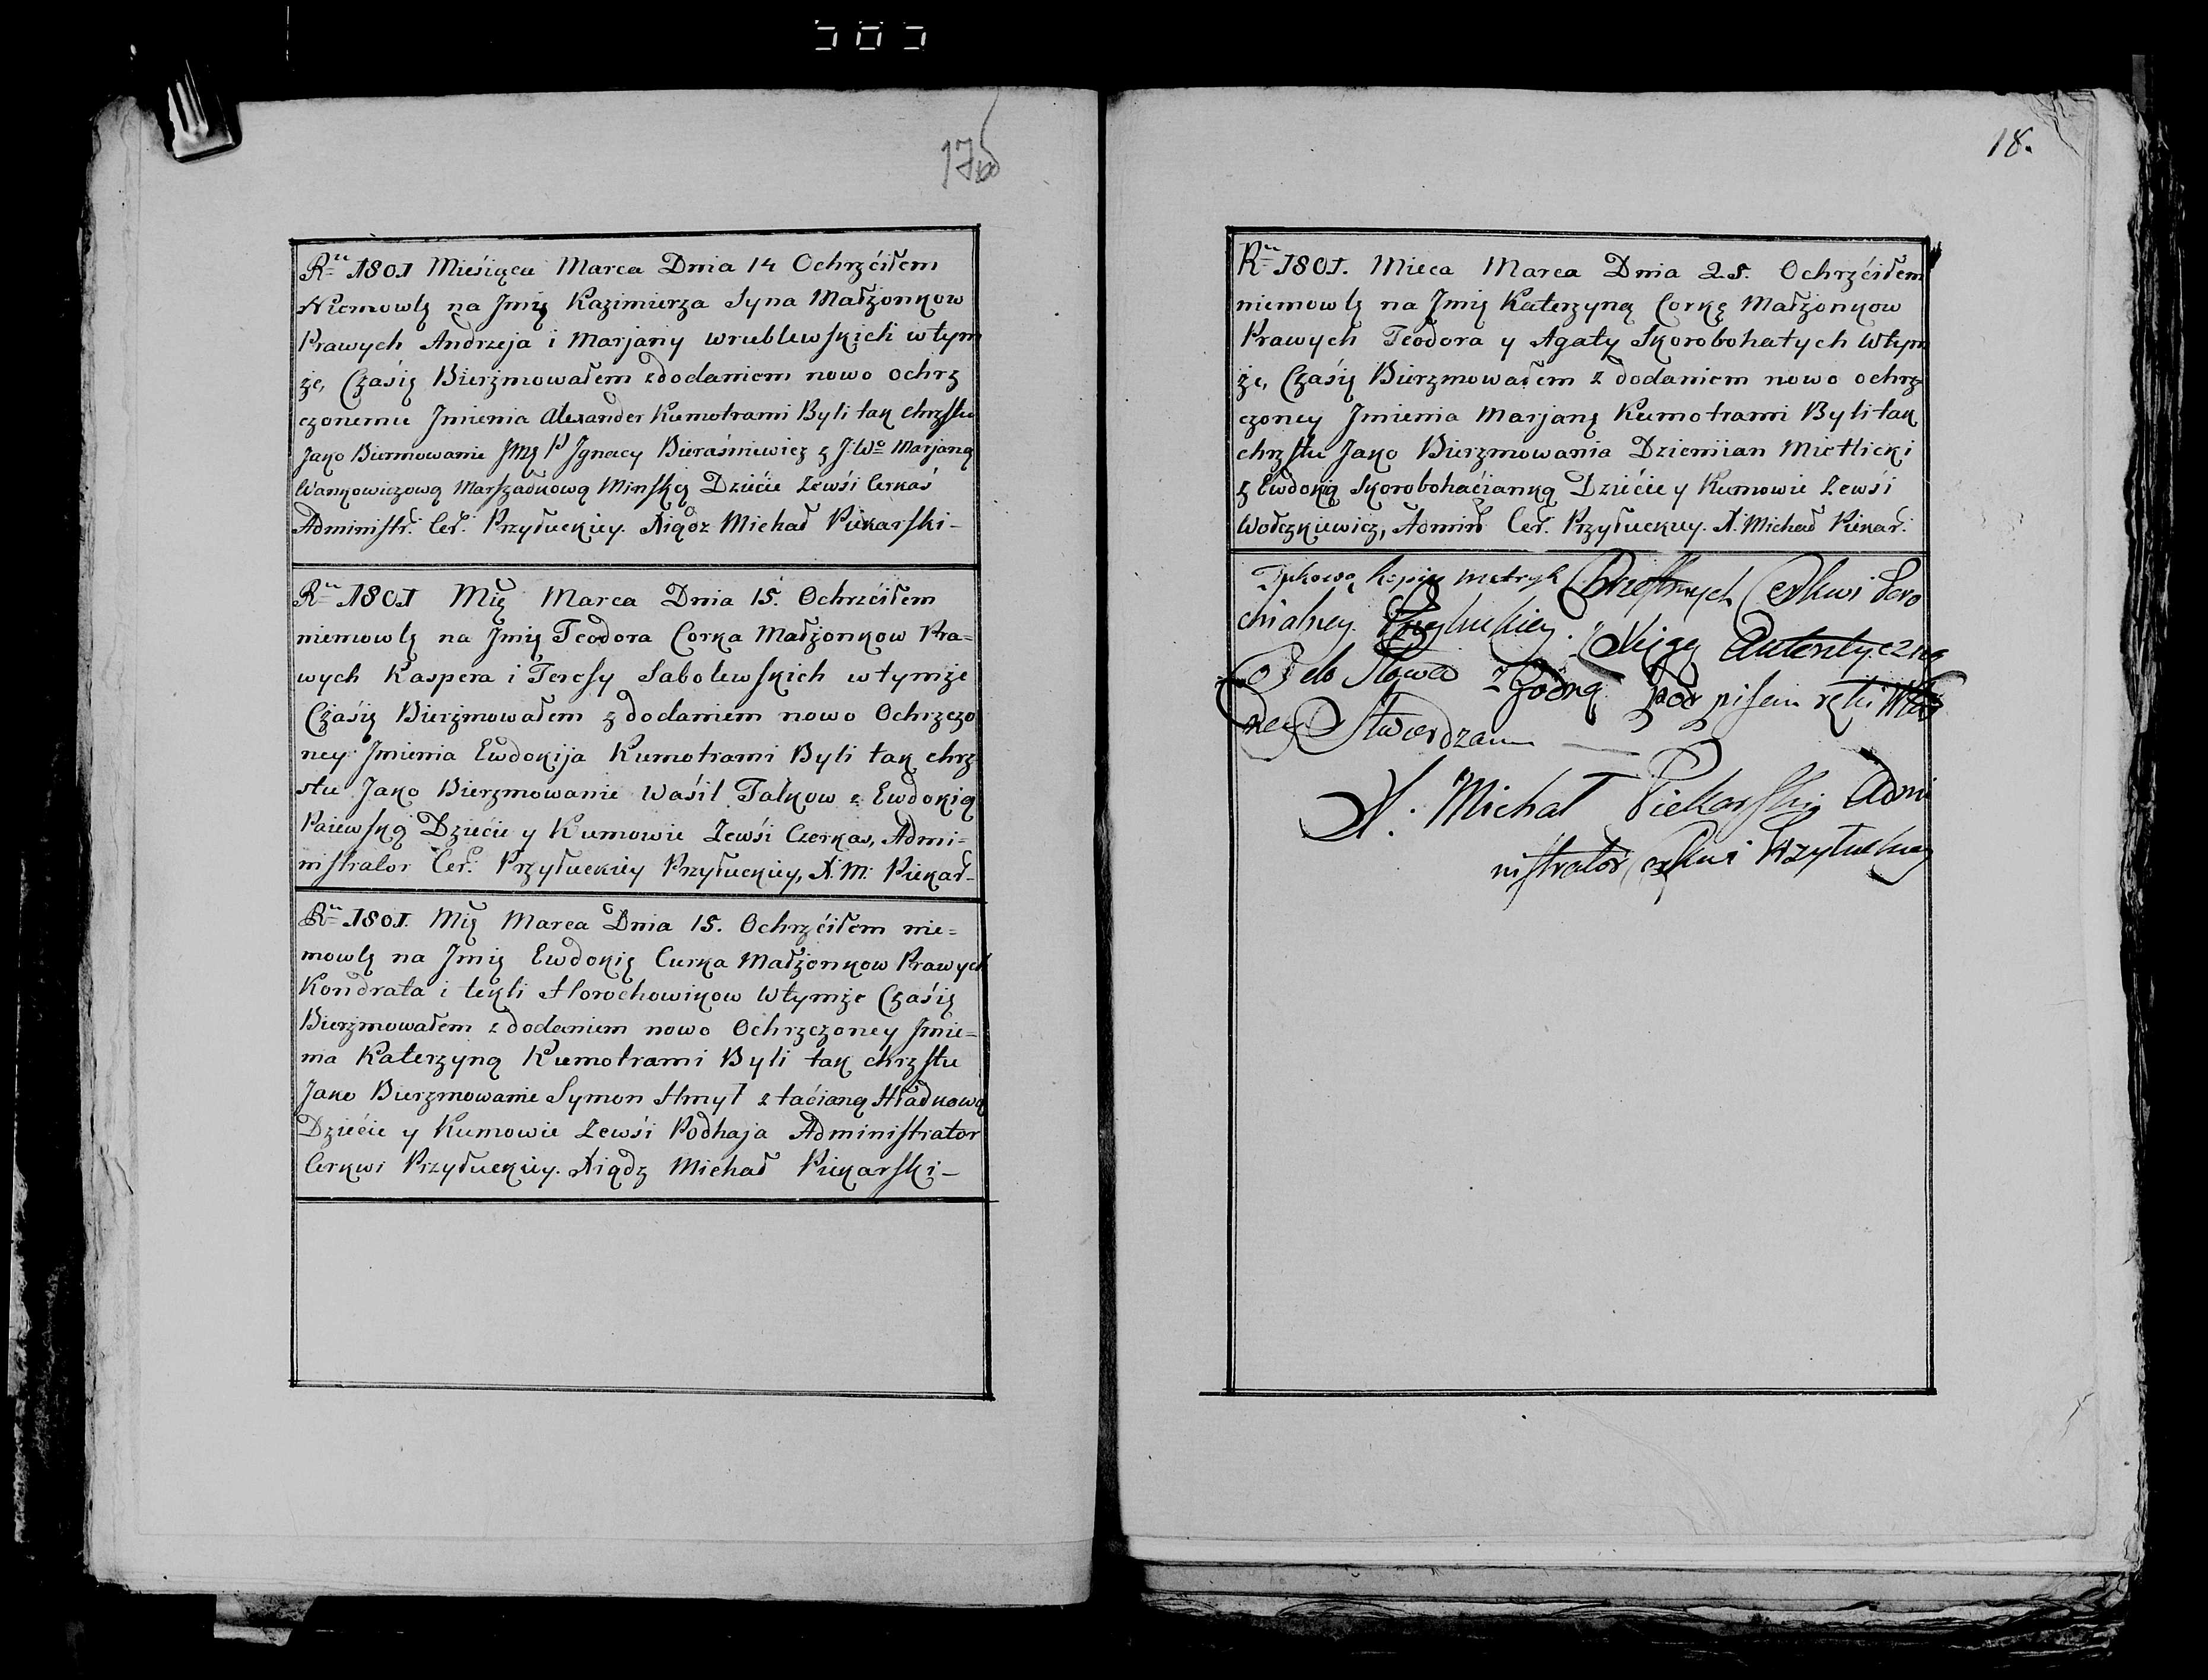 17
Rᵘ 1801 Mieśiąca Marca Dnia 14 Ochrzćiłem
Niemowlę na Jmię Kazimierza Syna Małżonkow
Prawych Andrzeja i Marjany wrublewskich wtym
że, Czaśię Bierzmowałem zdodaniem nowo ochrz
czonemu Jmienia Alexander Kumotrami Byli tak chrzstu
Jako Biermowanie Jmę P Jgnacy Bieraśniewicz z J:Wᵒ Marjaną
Wankowiczową Marszadkową Minską Dziećie Zewśi Cerkaś
Administr. Cer. Przyłuckiey. Xiądz Michał Piekarski-
Rᵘ 1801 Mię Marca Dnia 15. Ochrzciłem
niemowlę na Jmię Teodora Corka Małżonkow Pra=
wych Kaspera i Teresy Sabolewskich wtymże
Czaśię Bierzmowałem z dodaniem nowo Ochrzczo
ney Jmienia Ewdokija Kumotrami Byli tak chrz
stu Jako Bierzmowanie Waśil Talkow z Ewdokią
Paiewską Dziećie y Kumowie Zewśi Czerkas, Admi=
nistrator Cer. Przyłuckiey Przyłuckiey, X. M: Piekar-
Rᵘ 1801. Mię Marca Dnia 15. Ochrzćiłem nie=
mowlę na Jmię Ewdokię Curka Małżonkow Prawych
Kondrata i tekli Horochowikow Wtymże Czaśię
Bierzmowałem z dodaniem nowo Ochrzczoney Jmie=
nia Katerzyną Kumotrami Byli tak chrzstu
Jako Bierzmowanie Symon Hmył z taćianą Hładkową
Dziećie y Kumowie Zewśi Podhaja Administrator
Cerkwi Przyłuckiey. Xiądz Michał Piekarski-
18.
Rᵘ 1801. Mieca Marca Dnia 25. Ochrzćiłem
niemowlę na Jmię Katerzyną Corkę Małżonkow
Prawych Teodora y Agaty Skorobohatych Wtym
że, Czaśię Bierzmowałem z dodaniem nowo ochrz-
czoney Jmienia Marjanę Kumotrami Byli tak
chrzstu Jako Bierzmowania Dziemiian Mietlicki
z Ewdokią Skorobohaćianką Dziećie y Kumowie Zewśi
Wołczkiewicz, Admin Cer. Przyłuckiey. X. Michał Piekar.
Takową kopiję metryk Chrzestnych Cerkwi Paro
chialney Przyłuckiey. Xięgę Autentyczną
do Słowa zgodną podpisem ręki Włas
ney Stwerdzam
X. Michał Piekarski Admi
nistrator Cerkwi Przyłuckiey